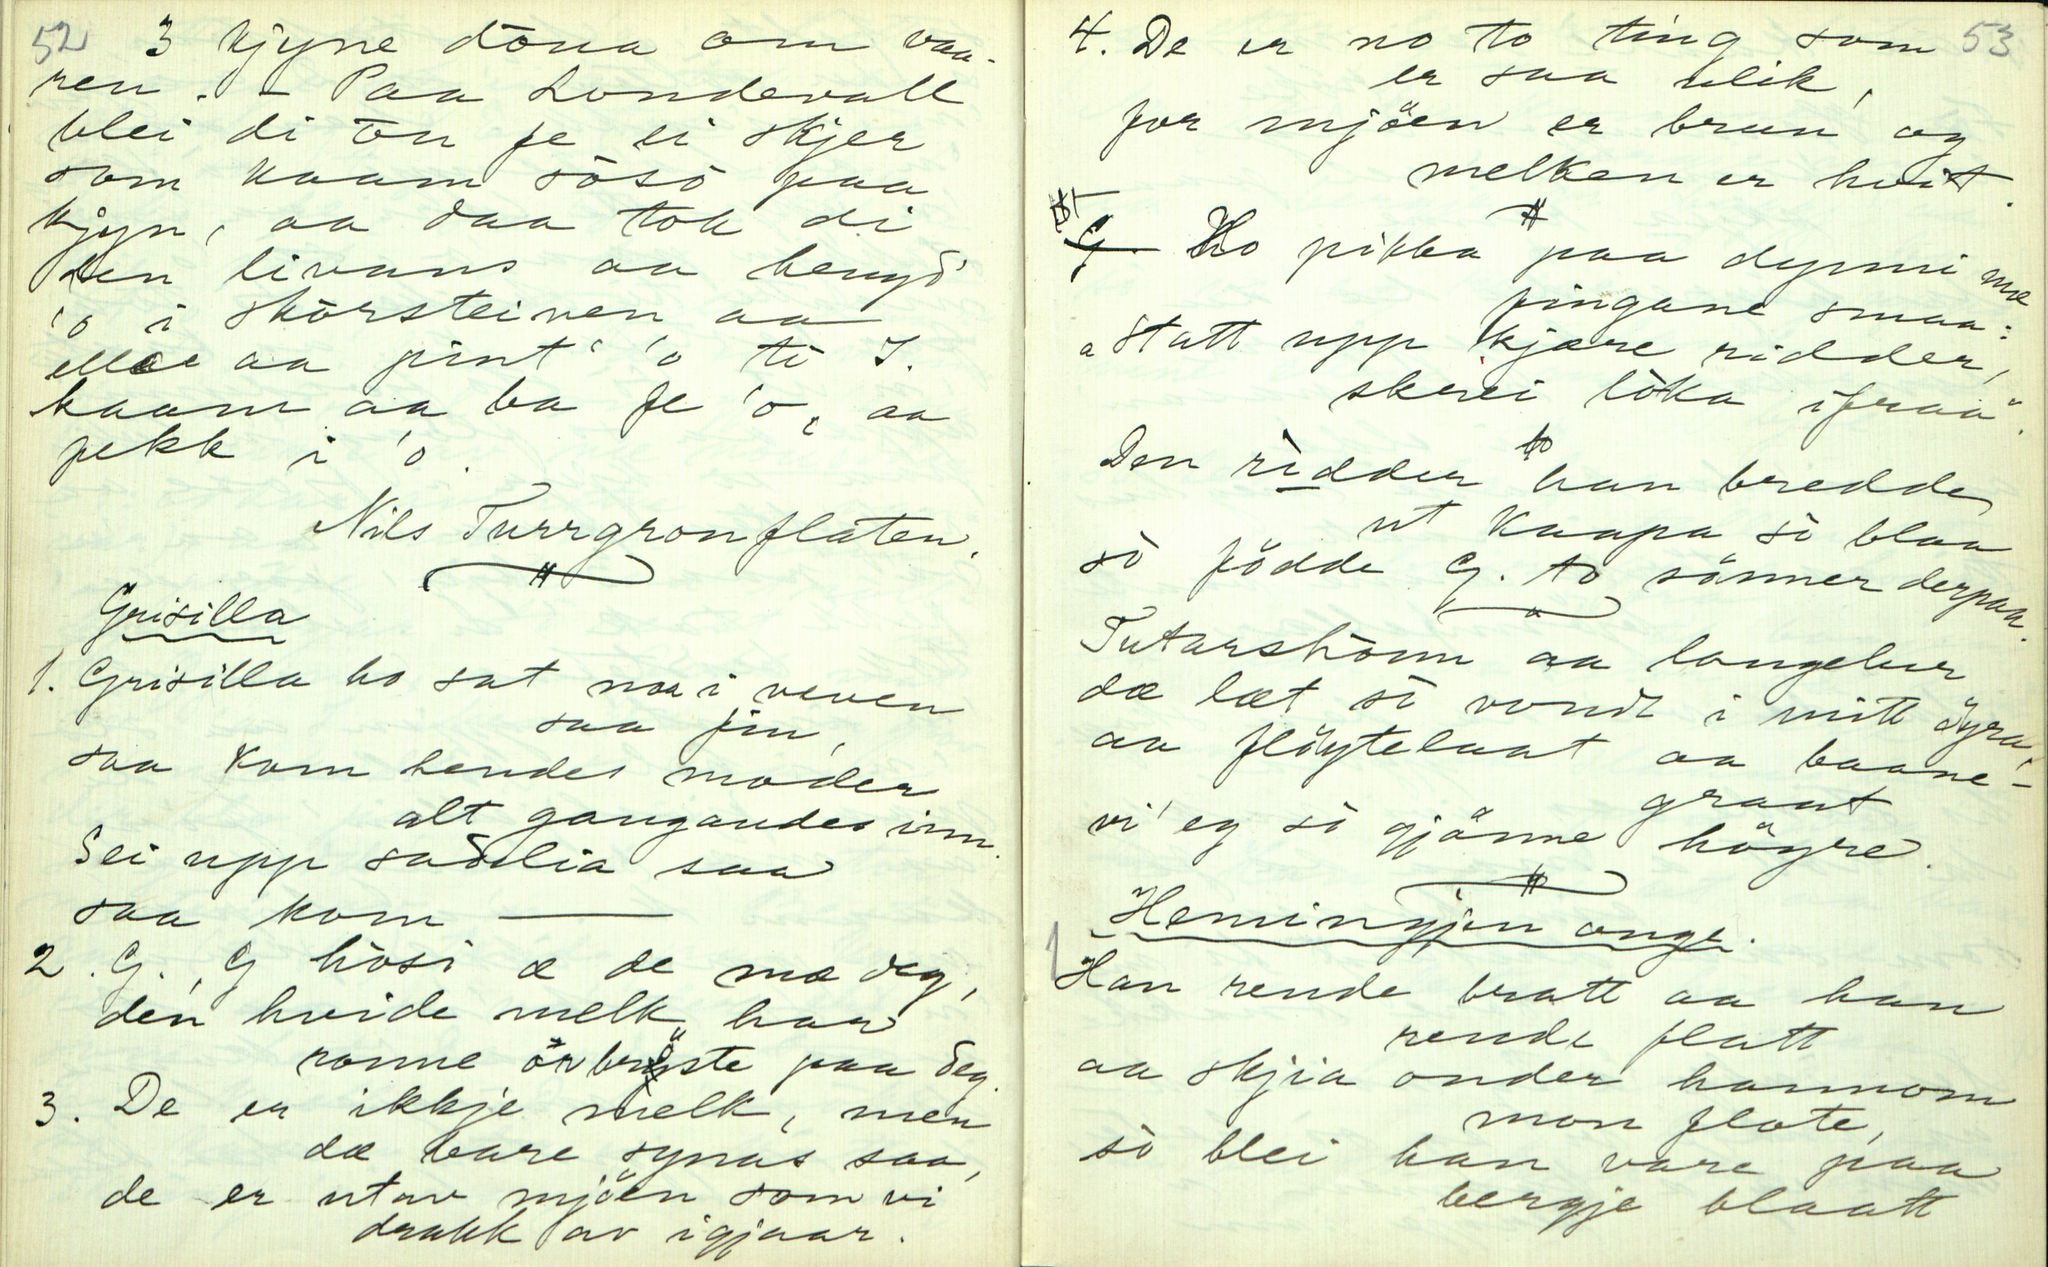 52
3 kjyne döua om vaa-
ren. - Paa Londevall
blei di ön fe ei skjer
som kaam sösö paa
kjyn, aa daa tok di
den livans aa hengd'
'o i skorsteinen aa
elllee aa pint' 'o te J.
kaam aa ba fe 'o, aa
fekk i 'o.
Nils Turrgronflaten.
Grisilla
1. Grisilla ho sat næ i veven
saa fin,
saa kom hendes moder
alt gangandes inn.
Sei upp sadelia saa
saa kom
2. G., G hòsi æ de mæ deg,
den hvide melk haar
ronne ör bröste paa deg.
3. De er ikkje melk, men
dæ bare synas saa,
de er utav mjöen som vi
drakk av igjaar.
53
4. De er no to ting som
er saa ulik,
for mjöen er brun og
melken er hvit.
Ho pikka paa dynni mæ
fingane smaa:
a statt upp kjære ridder,
skrei loka ifraa".
Den ridder han bredde
ut kaapa si blaa
sò födde G. to sönner derpaa.
Tutarshönn aa langelur
dæ læt sò vondt i mitt öyra
aa flöytelaat aa baane-
graat
vi' eg sò gjönne höyre.
Hemingjen onge.
1
Han rende bratt aa han
rende flatt
aa skjia onder hannom
mon flote,
sò blei han vare paa
bergje blaatt